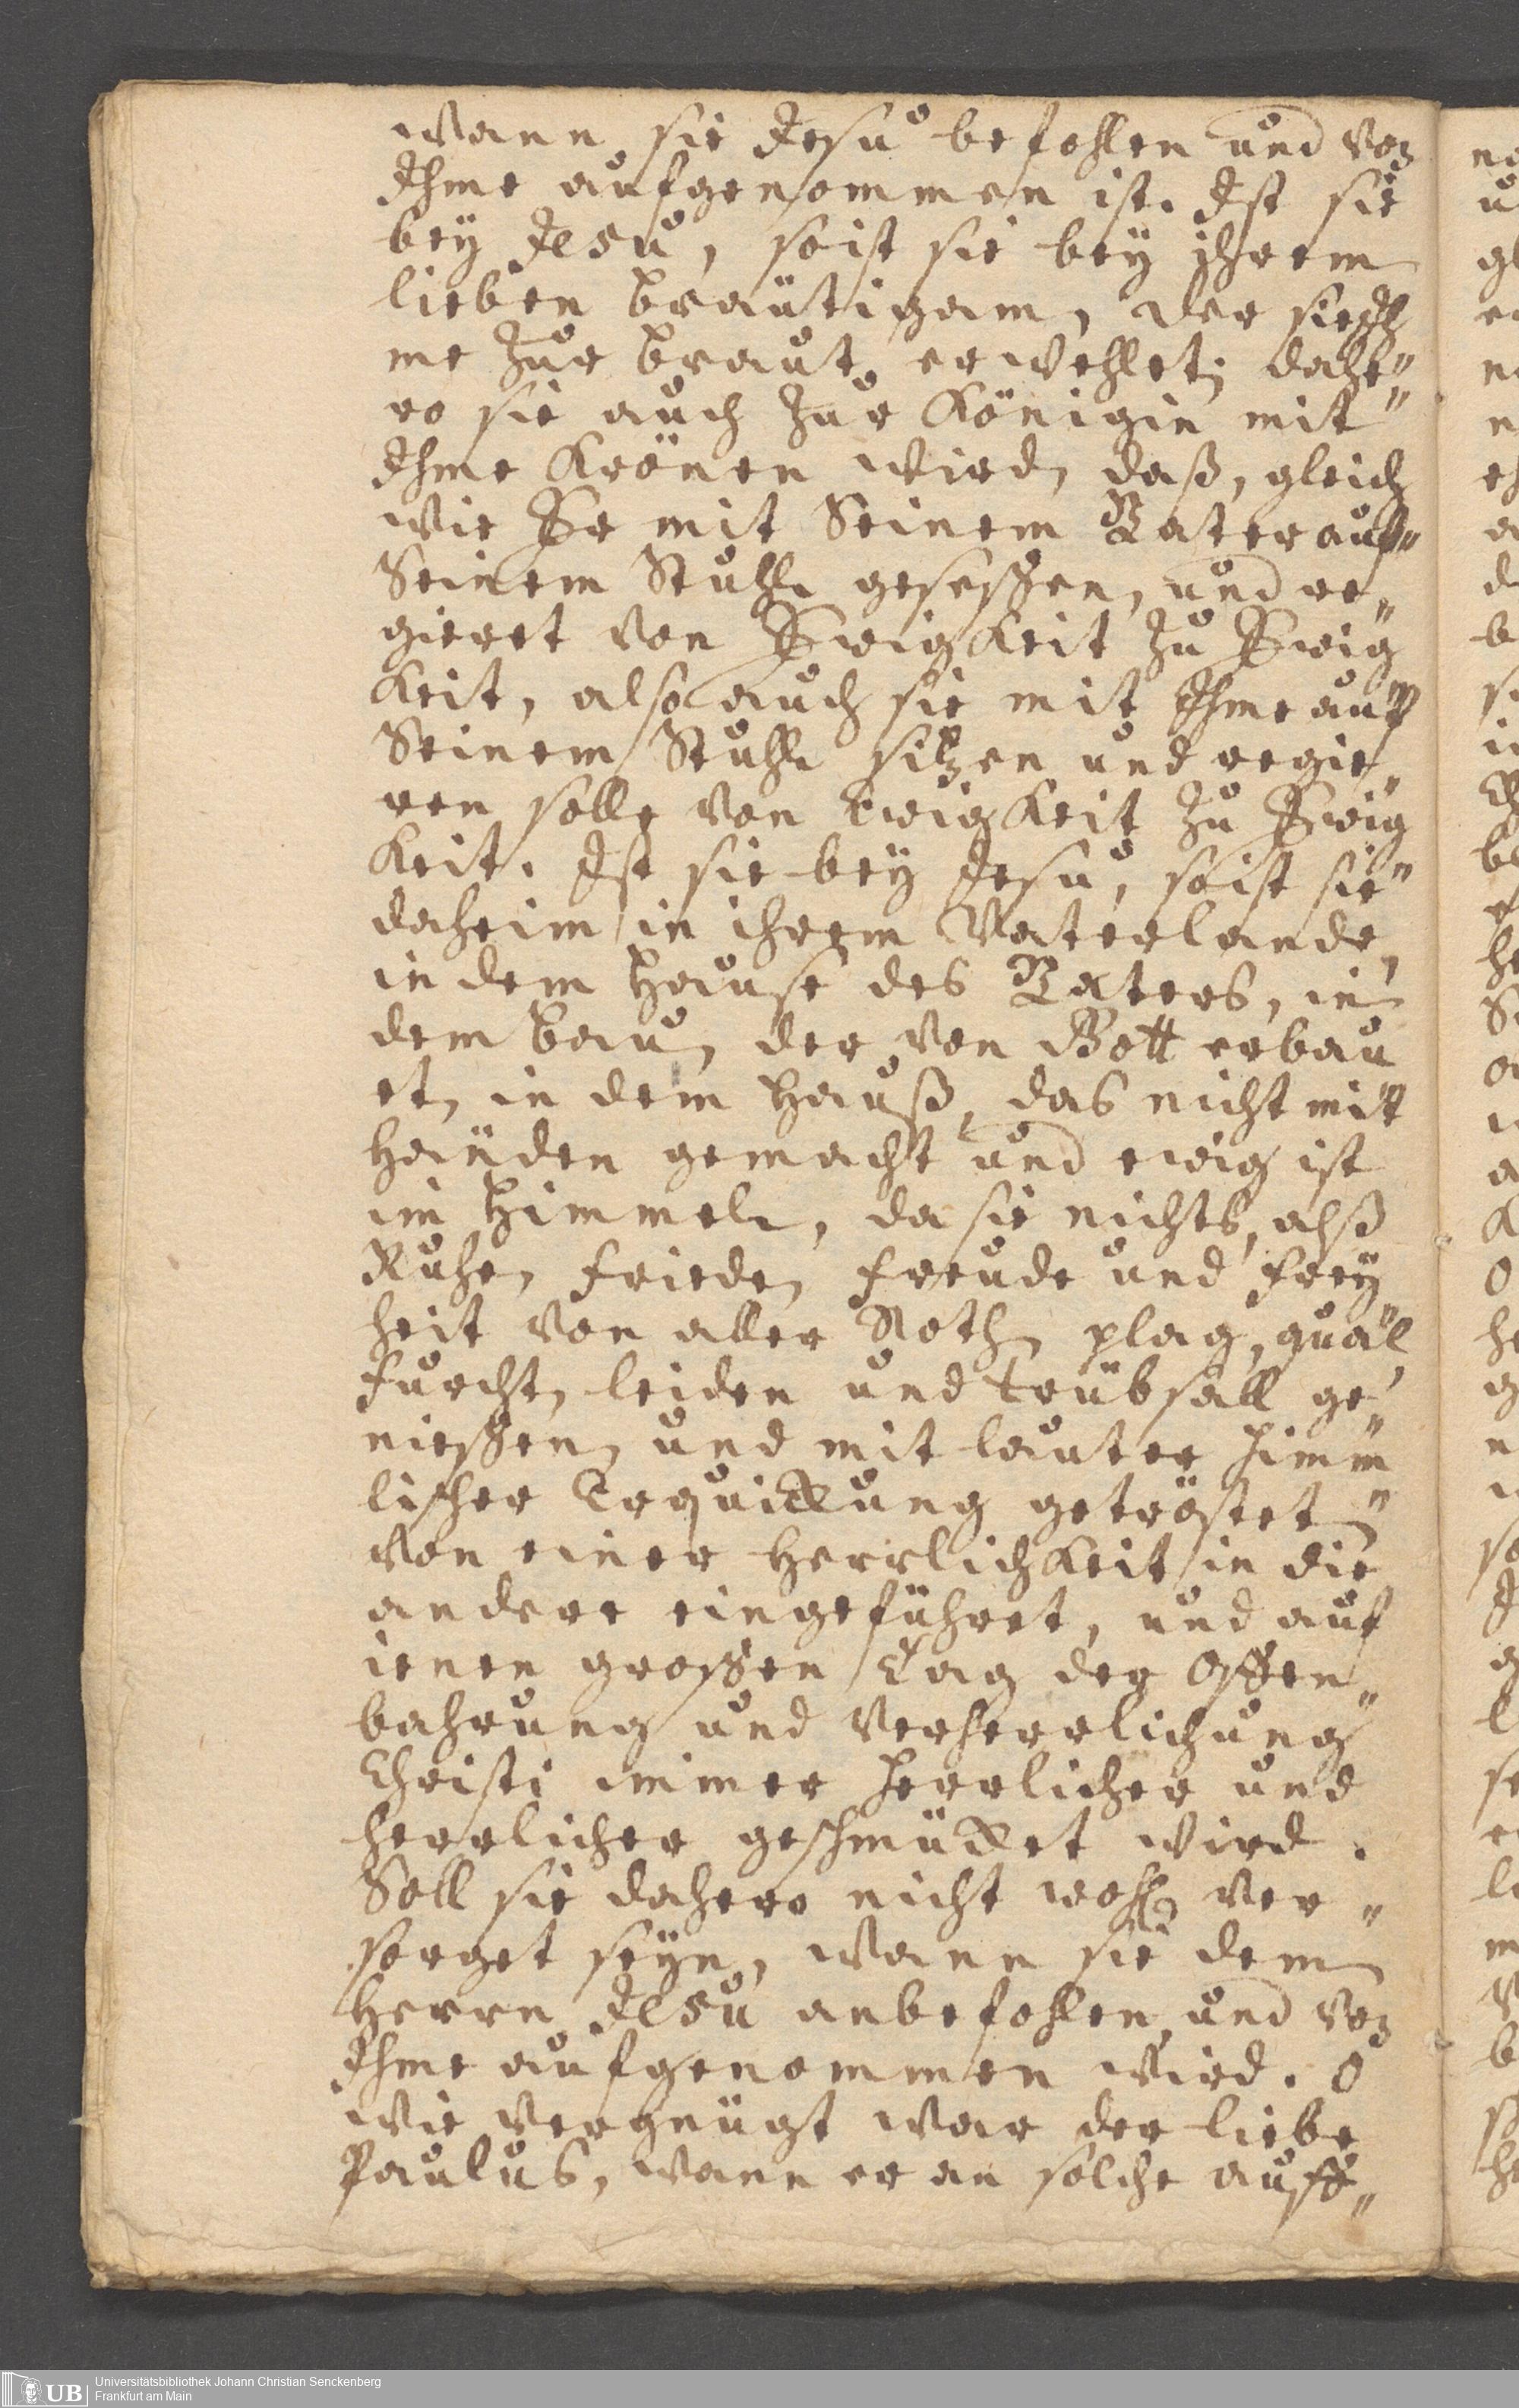 wann sie Jesu befohlen und von
Ihme aufgenommen ist. Ist sie
bey JEsu, so ist sie bey ihrem
lieben Bräutigam, der sie Ih
me zur Braut erwehlet; dahe„
ro sie auch zur Königin mit
Ihme krönen wird, daß, gleich
wie Er mit Seinem Vater auf
Seinem Stuhl gesessen, und re„
gieret von Ewigkeit zu Ewig
keit, also auch sie mit Ihme auf
Seinem Stuhl sitzen und regie„
ren solle von Ewigkeit zu Ewig
keit. Ist sie bey Jesu, so ist sie
daheim in ihrem Vaterlande,
in dem Hause des Vaters, in
dem Bau, der von Gott erbau
et, in dem Hauß, das nicht mit
Händen gemacht und ewig ist
im Himmel, da sie nichts, alß
Ruhe, Friede, Freude und Frey
heit von aller Noth, plag, qual,
Furcht, leiden und Trübsall ge„
niessen, und mit lauter himm
lischer Erquickung getröstet
von einer Herrlichkeit in die
andere eingeführet, und auf
ienen grossen Tag der Offen„
bahrung und Verherrlichung
Christi immer herrlicher und
herrlicher geschmücket wird.
Soll sie dahero nicht wohl ver„
sorget seyn, wann sie dem
Herrn JEsu anbefohlen und von
Ihme aufgenommen wird. O
wie vergnügt war der liebe
Paulus, wann er an solche auff„
UB
Universitätsbibliothek Johann Christian Senckenberg
Frankfurt am Main